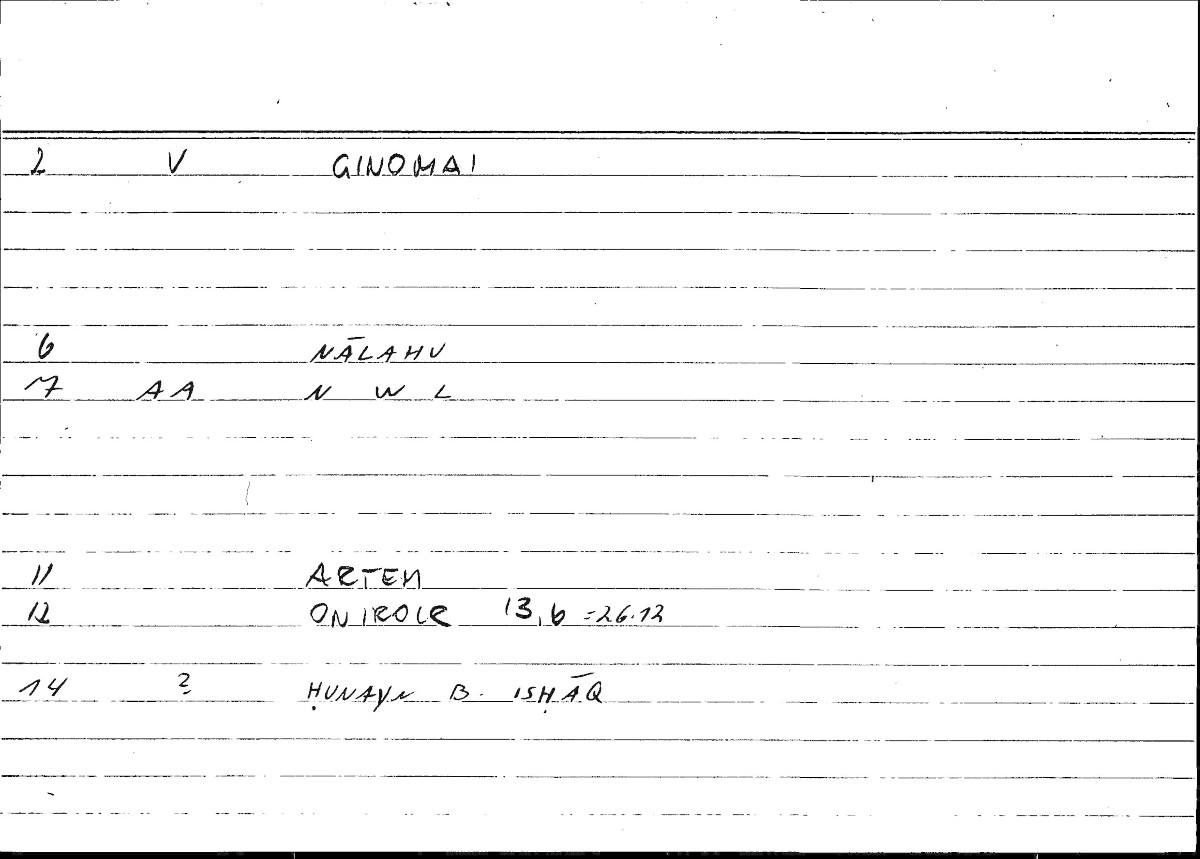 2 V GINOMAI
6 NĀLAHU
7 AA N W L
11 ARTEM
12 ONIROCR 13,6 =26.12
14 ? ḤUNAYN B. ISḤĀQ